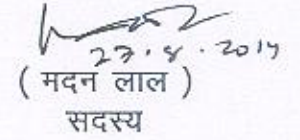 27.8.2014
( मदन लाल )
सदस्य